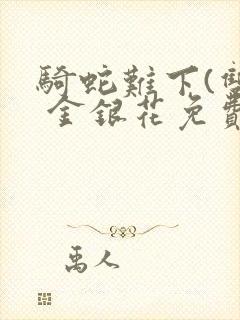 騎蛇難下(雙
金銀花免費
禹人